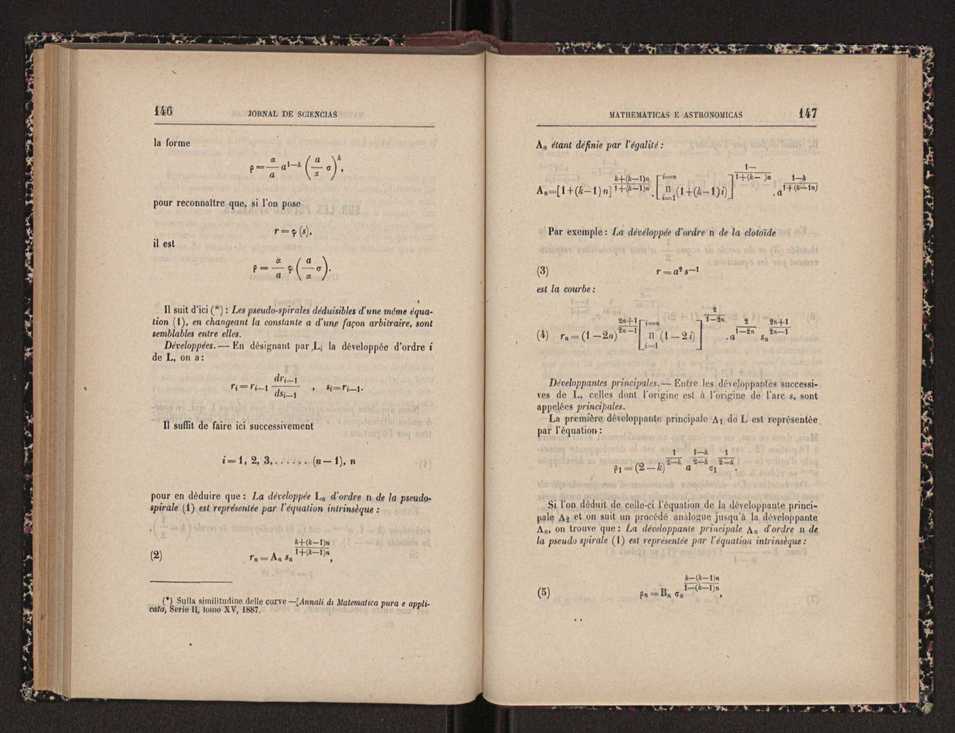 146 JORNAL DE SCIENCIAS
la forme
ρ = α/a a^{1−k} (a/α σ)^k,
pour reconnaître que, si l'on pose
r = φ (s),
il est
ρ = α/a φ (a/α σ).
Il suit d'ici (*) : Les pseudo-spirales déduisibles d'une même équa-
tion (1), en changeant la constante a d'une façon arbitraire, sont
semblables entre elles.
Développées. — En désignant par Li la développée d'ordre i
de L, on a:
r_i = r_{i−1} dr_{i−1}/ds_{i−1} , s_i = r_{i−1}.
Il suffit de faire ici successivement
i = 1, 2, 3, . . . . . . (n − 1), n
pour en déduire que : La développée Ln d'ordre n de la pseudo-
spirale (1) est représentée par l'équation intrinsèque :
(2) r_n = A_n s_n^{(k+(k−1)n)/(1+(k−1)n)},
(*) Sulla similitudine delle curve — [Annali di Matematica pura e appli-
cata, Serie II, tomo XV, 1887.
MATHEMATICAS E ASTRONOMICAS 147
An étant définie par l'égalité :
A_n = [1+(k−1)n]^{(k+(k−1)n)/(1+(k−1)n)} . [Π_{i=1}^{i=n} (1+(k−1)i)]^{1−/(1+(k− )n)} . a^{(1−k)/(1+(k−1n)}
Par exemple : La dévéloppée d'ordre n de la clotoïde
(3) r = a² s^{−1}
est la courbe :
(4) r_n = (1−2n)^{(2n+1)/(2n−1)} [Π_{i=1}^{i=n} (1−2i)]^{2/(1−2n)} . a^{2/(1−2n)} s_n^{(2n+1)/(2n−1)}
Développantes principales. — Entre les développantes successi-
ves de L, celles dont l'origine est à l'origine de l'arc s, sont
appelées principales.
La première développante principale Λ1 de L est représentée
par l'équation :
ρ_1 = (2−k)^{1/(2−k)} a^{(1−k)/(2−k)} σ_1^{1/(2−k)} .
Si l'on déduit de celle-ci l'équation de la développante princi-
pale Λ2 et on suit un procédé analogue jusqu'à la développante
Λn, on trouve que : La développante principale Λn d'ordre n de
la pseudo spirale (1) est représentée par l'équation intrinsèque :
(5) ρ_n = B_n σ_n^{(k−(k−1)n)/(1−(k−1)n)},